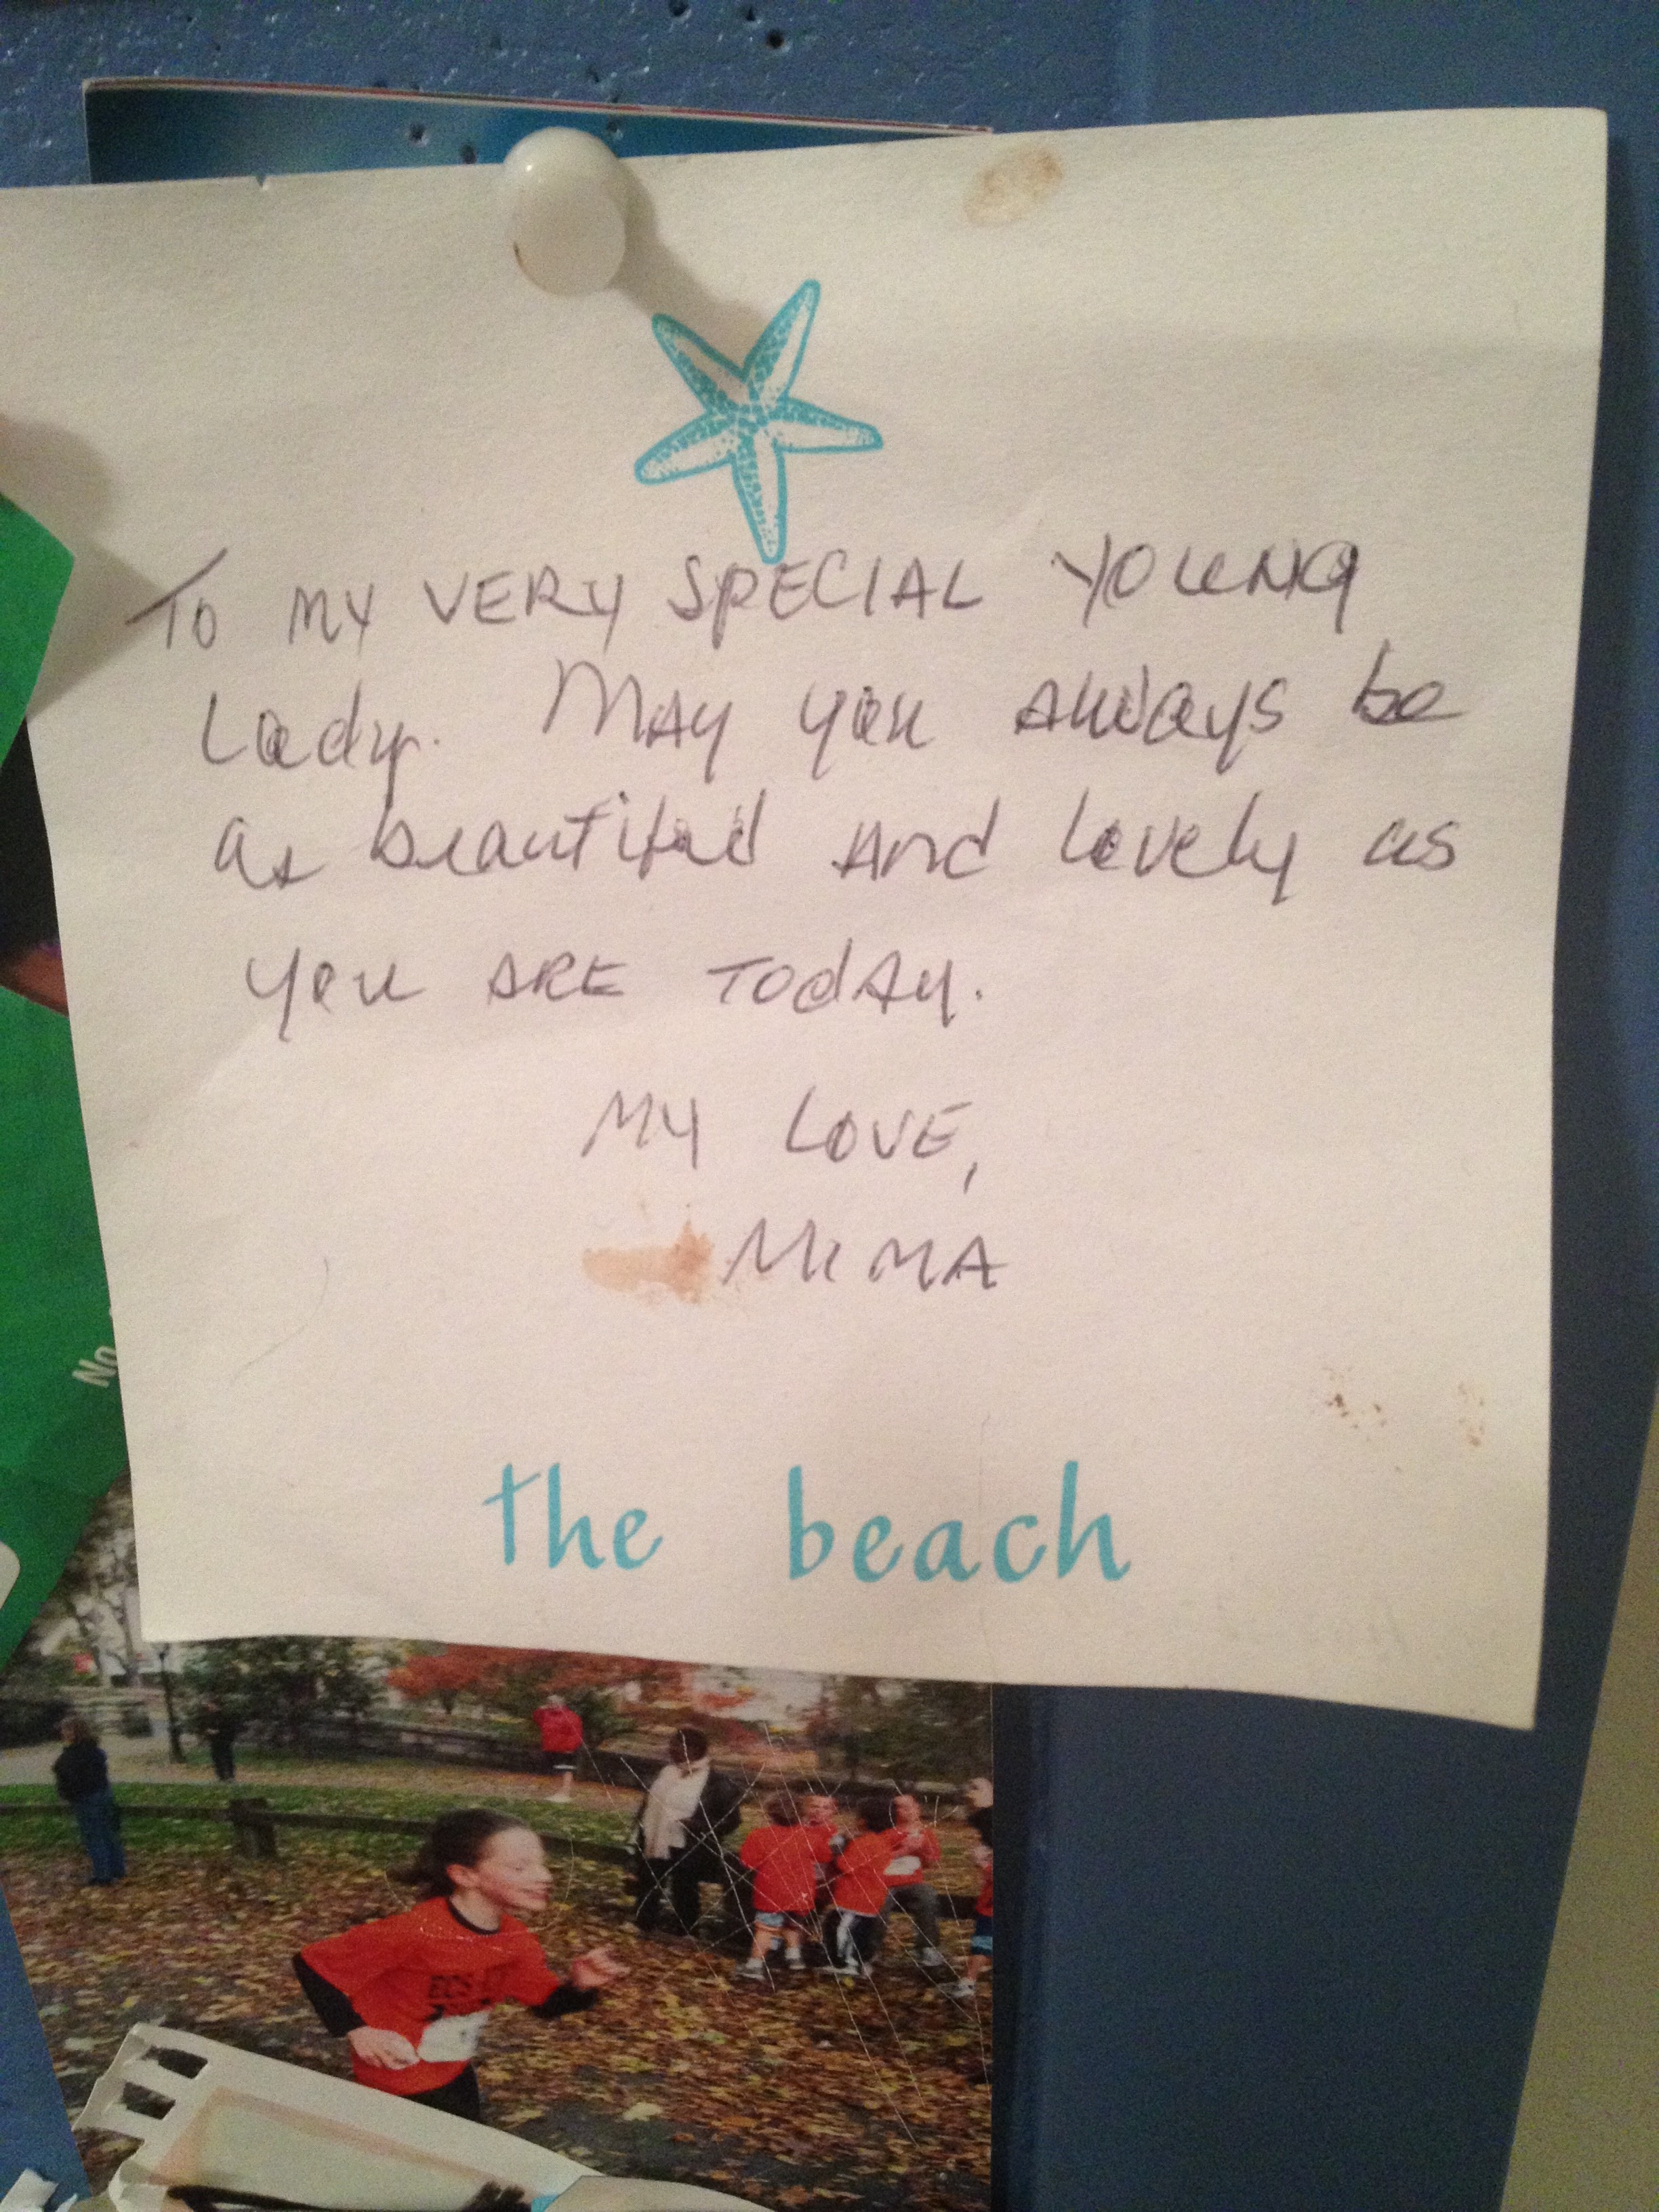 TO MY VERY SPECIAL YOUNG
Lady. MAY you always be
as beautiful And lovely as
you ARE TODAY.
MY LOVE,
MIMA
the beach
No
ECS